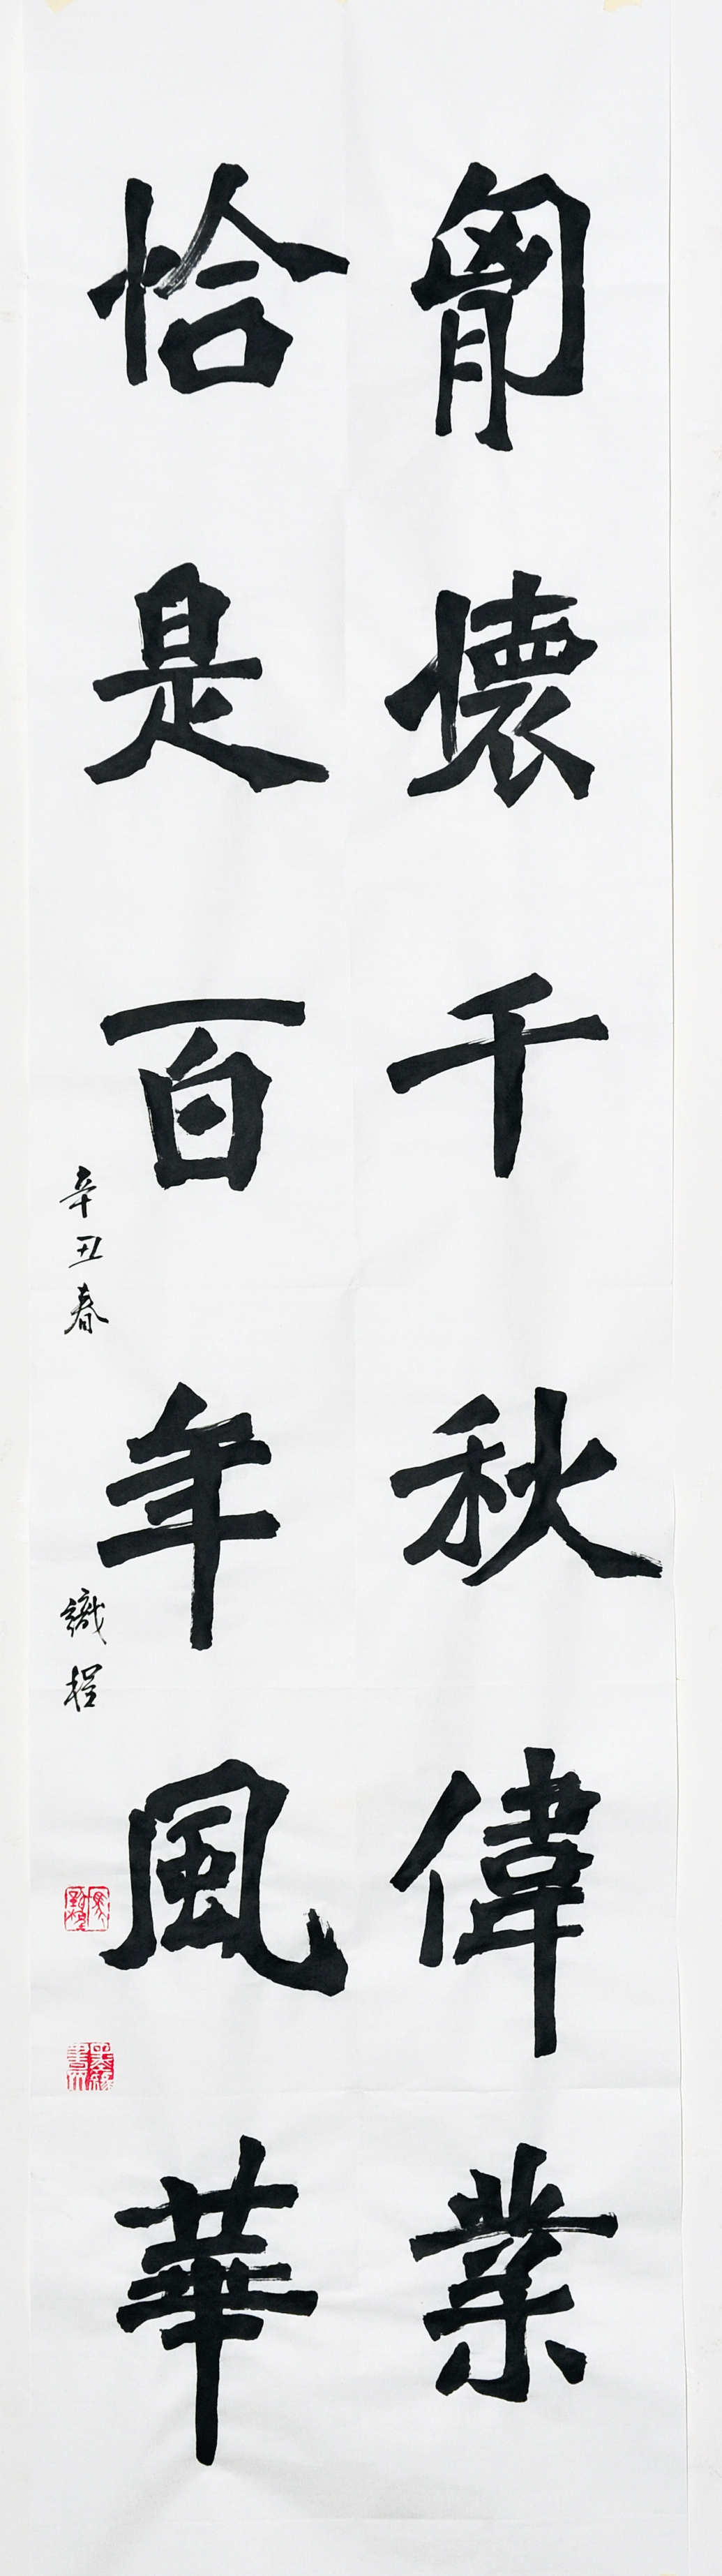 胷懷千秋偉業
恰是百年風華
辛丑春
織程